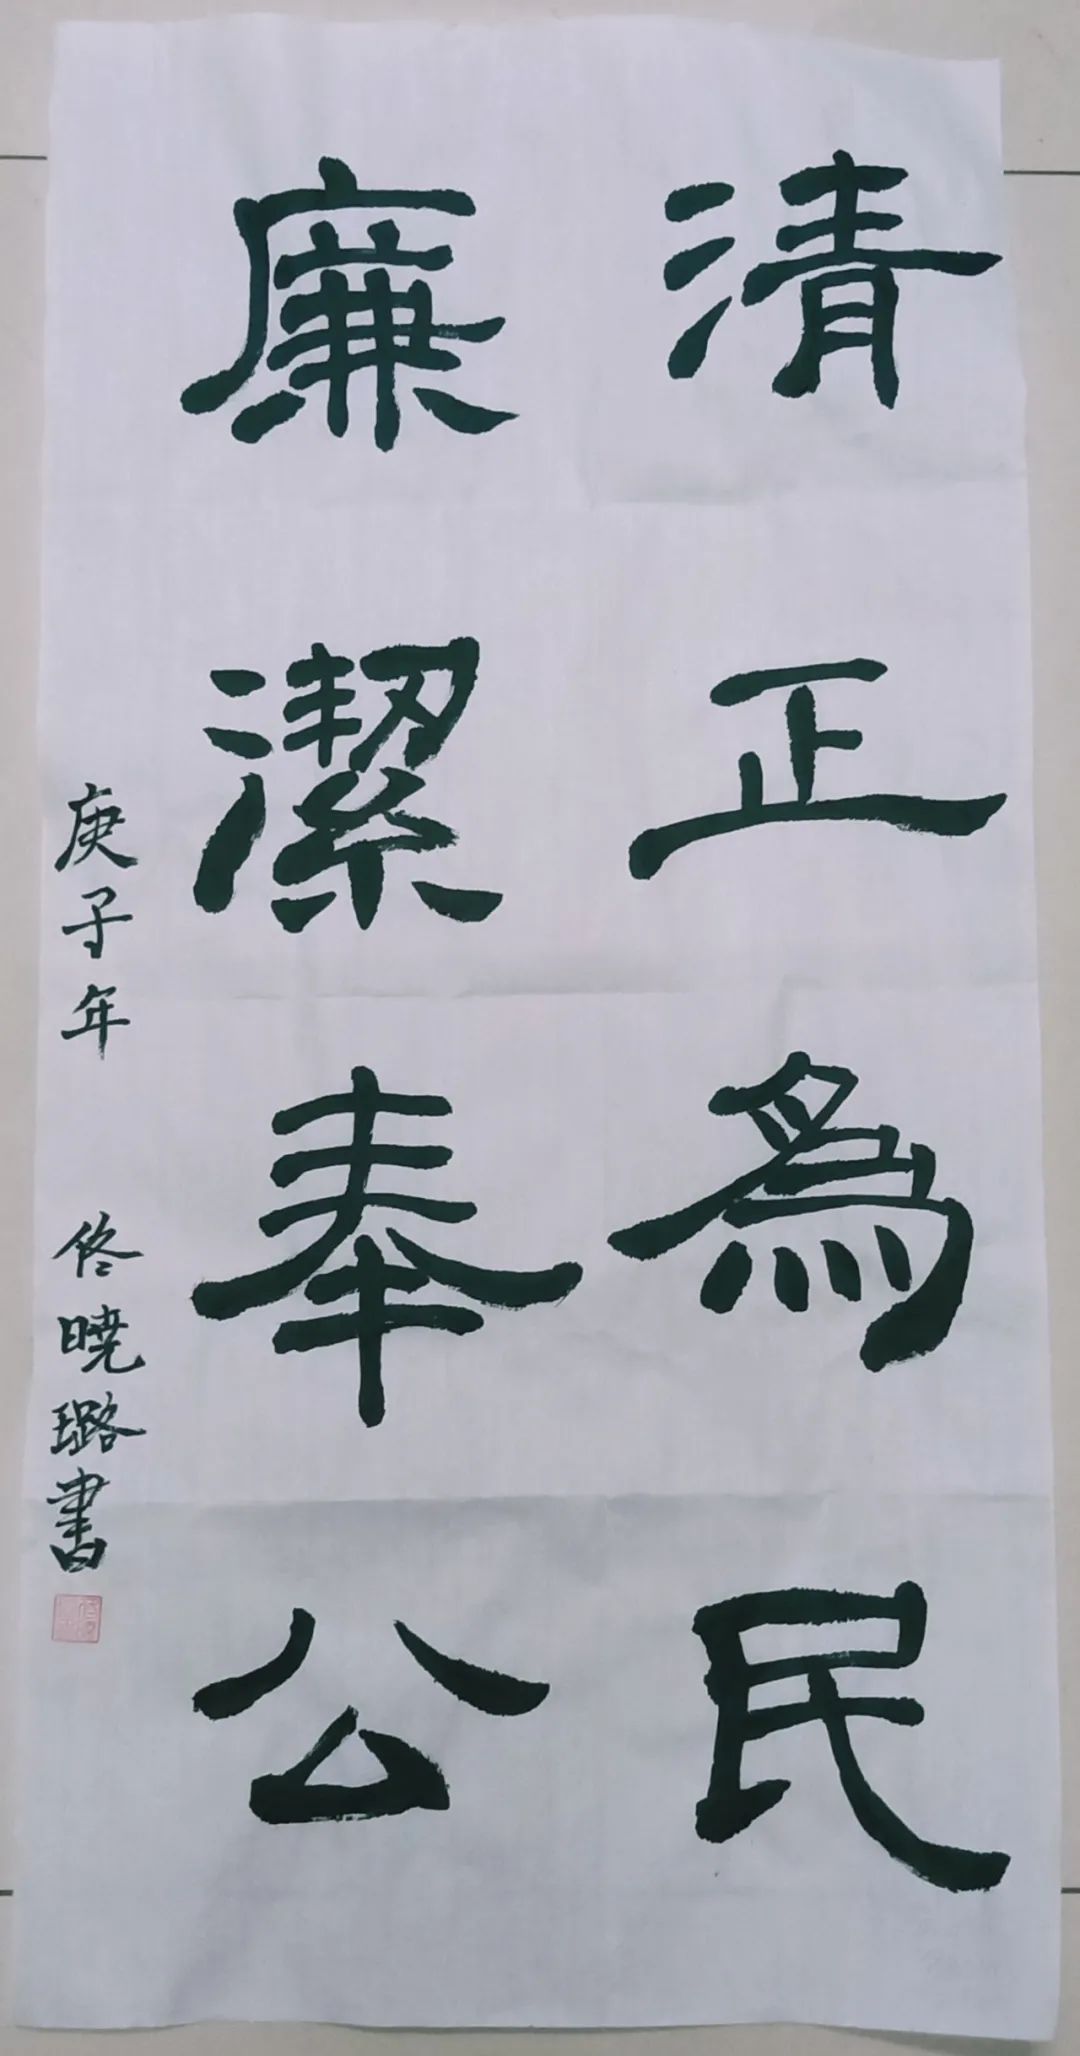 清正為民
廉潔奉公
庚子年 佟曉璐書